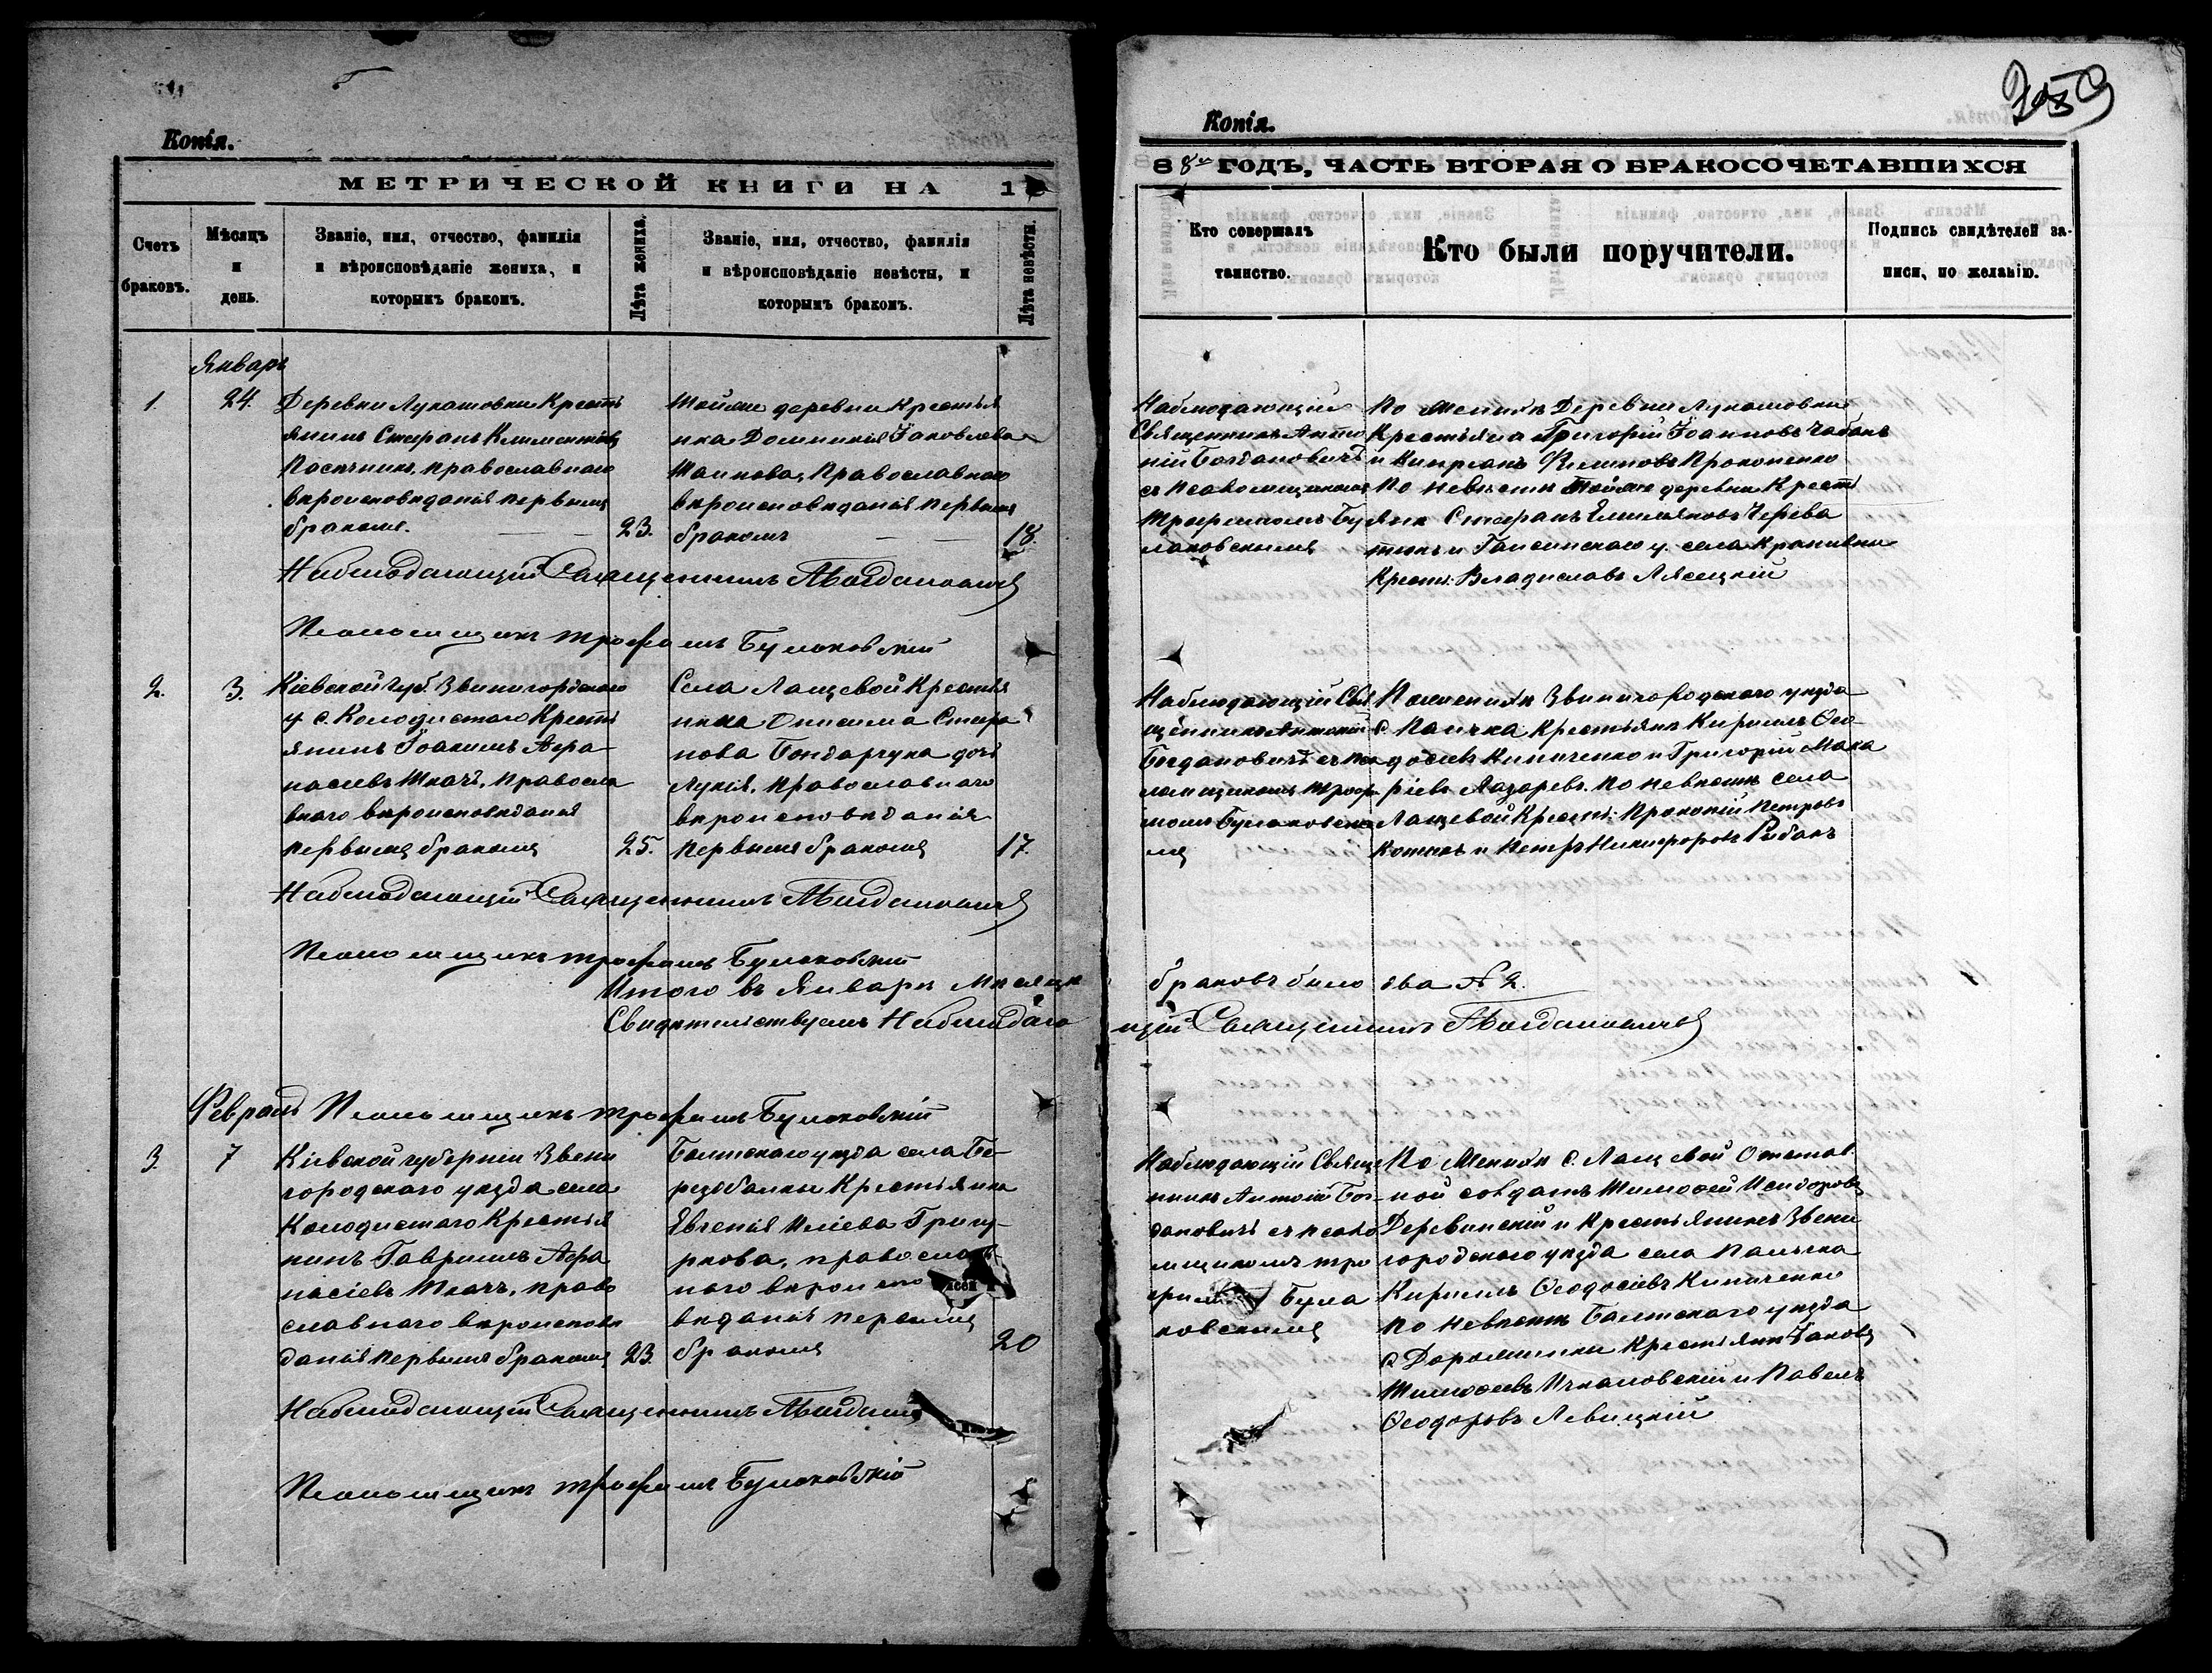 Копія.
МЕТРИЧЕСКОЙ КНИГИ НА 1
Счетъ браковъ.
Мѣсяцъ и день.
Званіе, имя, отчество, фамилія
и вѣроисповѣданіе жениха, и
которымъ бракомъ.
Лѣта жениха.
Званіе, имя, отчество, фамилія
и вѣроисповѣданіе невѣсты, и
которымъ бракомъ.
Лѣта невѣсты.
Январь
1. 24.
Деревни Лукашовки Кресть
янинъ Стефанъ Климентіевъ
православнаго
вѣроисповѣданія первымъ
бракомъ. 23.
Тойже деревни Крестья
нка Домникія Іаковлева
Православнаго
вѣроисповѣданія первымъ
бракомъ 18.
Наблюдающій Священникъ А Богдановичъ
Псаломщикъ Трофимъ Булаковскій
2. 3.
Кіевской губ. Звинигородскаго
у с. Колодистаго Кресть
янинъ Іоакимъ Афа
насіевъ Ткачъ, Правосла
внаго вѣроисповѣданія
первымъ бракомъ 25.
Села Лащевой Крестья
нина Онисима Стефа
нова Бондарчука дочь
Лукія, православнаго
вѣроисповѣданія
первымъ бракомъ 17.
Наблюдающій Священникъ А Богдановичъ
Псаломщикъ Трофимъ Булаковскій
Итого въ Январѣ Мѣсяцѣ
Свидѣтельствуемъ Наблюдаю
Февраль Псаломщикъ Трофимъ Булаковскій
3. 7
Кіевской губерніи Звени
городскаго уѣзда села
Колодистаго Крестья
нинъ Гавріилъ Афа
насіевъ Ткачъ, право
славнаго вѣроисповѣ
данія первымъ бракомъ 23.
Балтскаго уѣзда села Бе-
резобалки Крестьянка
Евгенія Иліева Григу-
ркова, православ-
наго вѣроиспо
вѣданія первымъ
бракомъ 20
Наблюдающій Священникъ А Богдано
Псаломщикъ Трофимъ Булаковскій
Копія.
88 ГОДЪ, ЧАСТЬ ВТОРАЯ О БРАКОСОЧЕТАВШИХСЯ
Кто совершалъ
таинство.
Кто были поручители.
Подпись свидѣтелей за-
писи, по желанію.
Наблюдающій
Священникъ Анто
ній Богдановичъ
съ Псаломщикомъ
Трофимомъ Бу
лаковскимъ
По Женихѣ Деревни Лукашовки
Крестьяна Григорій Іоанновъ Чабанъ
и Кипріанъ Прокопенко
По невѣстѣ Тойже деревни Кресть
янк Стефанъ Емиліановъ Черева
тюкъ и Гайсинскаго у. села Крапивни
Крест: Владиславъ Лясецкій
Наблюдающій Свя
щенникъ Антоній
Богдановичъ съ Пса
ломщикомъ Трофи
момъ Булаковски
мъ
По женихѣ Звинигородскаго уѣзда
с. Кресттьянк Кирилъ Ѳео-
досіевъ Кинченко и Григорій Мака
ріевъ Лазаревъ. По невѣстѣ села
Лащевой Крестъ: Прокопій Петровъ
и Петръ Никифоровъ Рибакъ
браковъ было два № 2.
щій Священникъ А Богдановичъ
Наблюдающій Свяще
нникъ Антоній Бог-
дановичъ съ псало
мщикомъ Тро
фи Була
ковскимъ
По Женихѣ с. Лащевой Отстав.
ной солдатъ Тимоѳей Исидоровъ
Деревинскій и Крестьянинъ Звени
городскаго уѣзда села
Кирилъ Ѳеодосіевъ Кинченко
По невѣстѣ Балтскаго уѣзда
с Крестьянк Іаковъ
Тимоѳеевъ и Павелъ
Ѳеодоровъ Левицкій